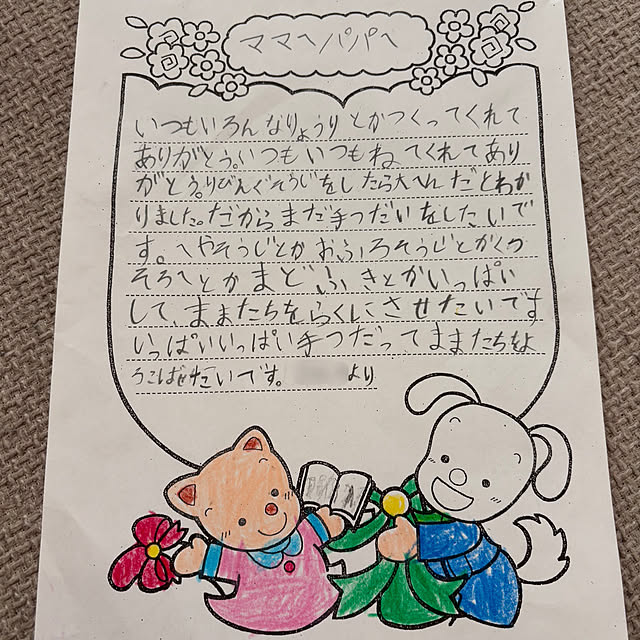 ママへパパへ
いつもいろんなりょうりとかつくってくれて
ありがとう。いつもいつもね、てくれてあり
がとう。りびんぐそうじをしたら大へんだとわか
りました。だからまだ手つだいをしたいで
す。へやそうじとかおふろそうじとかくつ
そろへとかまどふきとかいっぱい
して、ままたちをらくにさせたいです
いっぱいいっぱい手つだってままたちをよ
うこばせたいです。
より